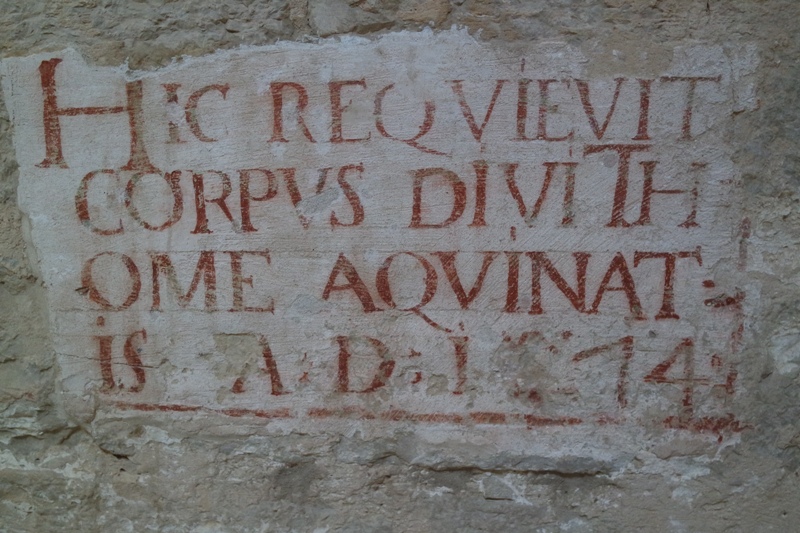 HIC REQVIEVIT
CORPVS DIVI TH
OME AQVINAT-
IS A D: 1 74